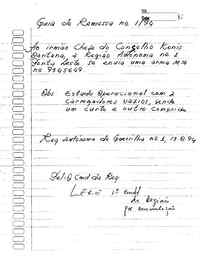 Guia de Remessa no 1/94
Ao irmão Chefe do Concelho Konis
Santana, a Região Autonoma no 2
Ponta Leste se envia uma arma M16
no 9345669.
Obs Estado Operacional com 2
carregadores vazios, sendo
um curto e outro comprido
Reg Autónoma de Guerrilha no 2, 17.8.94
Del. Cmd da Reg
Leró 1º cmdt
da Região